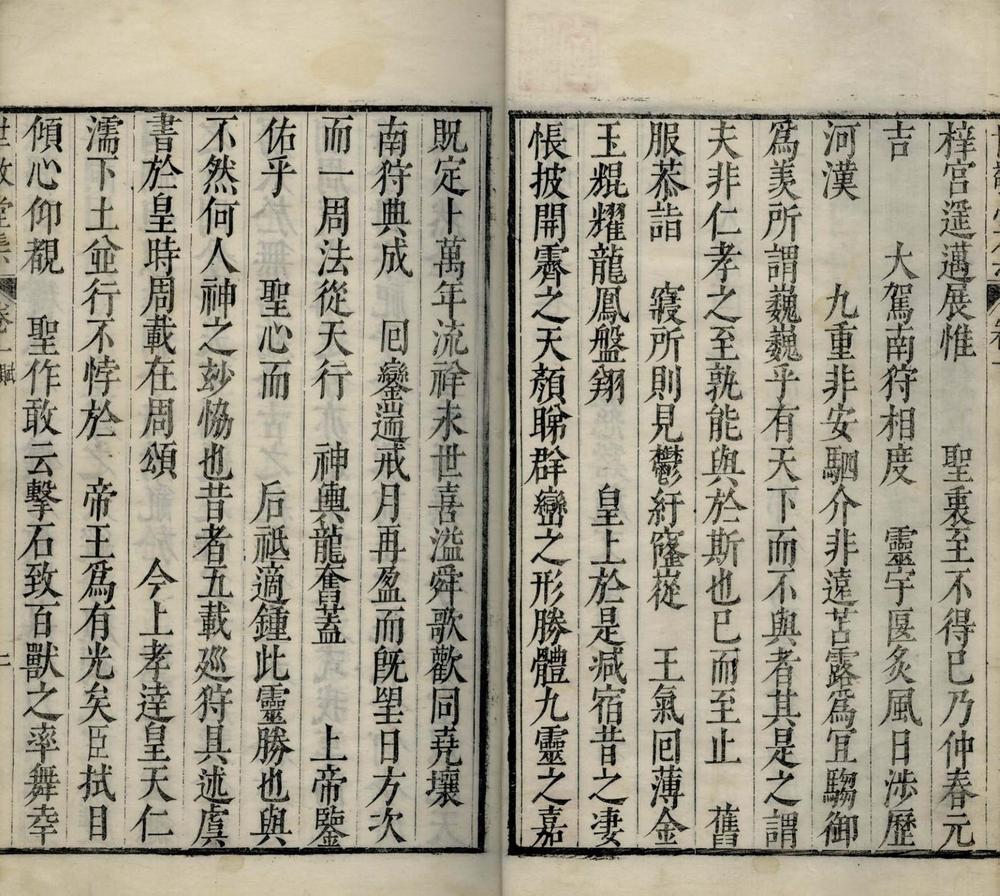 梓宮遥邁展惟　聖衷至不得已乃仲春元
吉　大駕南狩相度　靈宇匽炙風日涉歷
河漢　九重非安駟介非遠苦露爲宜騶御
爲羙所謂巍巍乎有天下而不與者其是之謂
夫非仁孝之至孰能與於斯也已而至止　舊
服恭詣　寢所則見鬱紆窿嵸　王氣囘薄金
玉焜耀龍鳳盤翔　皇上於是减宿昔之凄
悵披開霽之天顏睇群巒之形勝體九靈之嘉
既定卜萬年流祥末世喜溢舜歌歡同堯壤
南狩典成　囘鑾遄戒月再盈而旣望日方次
而一周法從天行　神輿龍奮蓋　上帝鑒
佑乎　聖心而　后祇適鍾此靈勝也與
不然何人神之玅恊也昔者五載廵狩具述虞
書於皇時周載在周頌　今上孝逹皇天仁
濡下土並行不悖於　帝王爲有光矣臣拭目
傾心仰覩　聖作敢云擊石致百獸之率舞幸
世敬堂集　卷一　賦　二